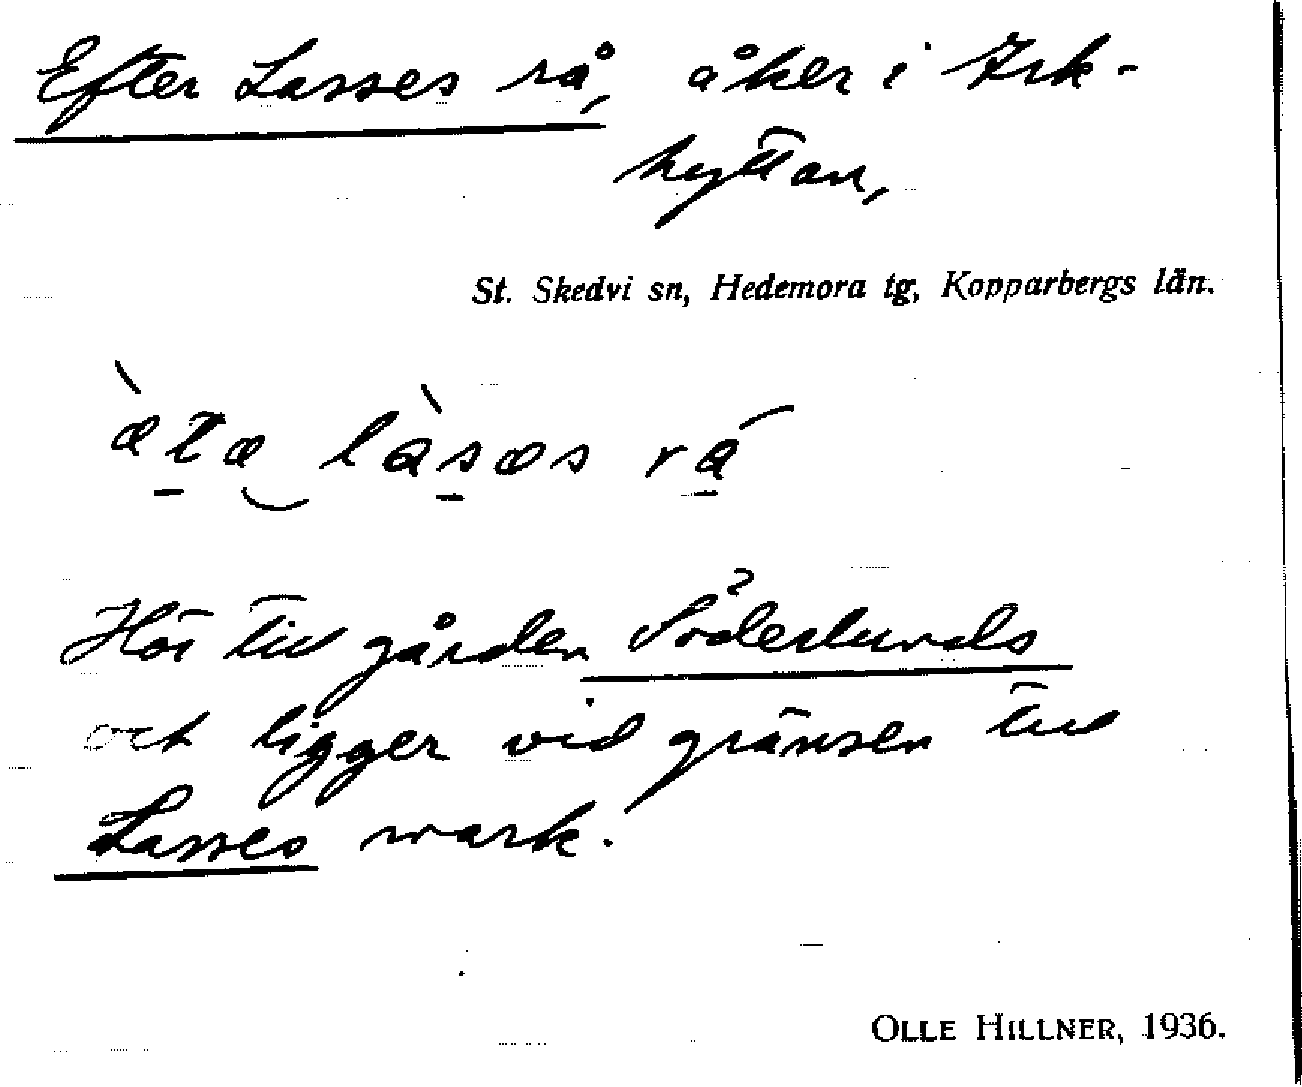 Efter Lasses rå, åker i Irk-
hyttan,
St. Skedvi sn, Hedemora tg, Kopparbergs län.
æ̀tæ làsæs rá
Hör till gården Söderlunds
och ligger vid gränsen till
Lasses mark.
OLLE HILLNER, 1936.